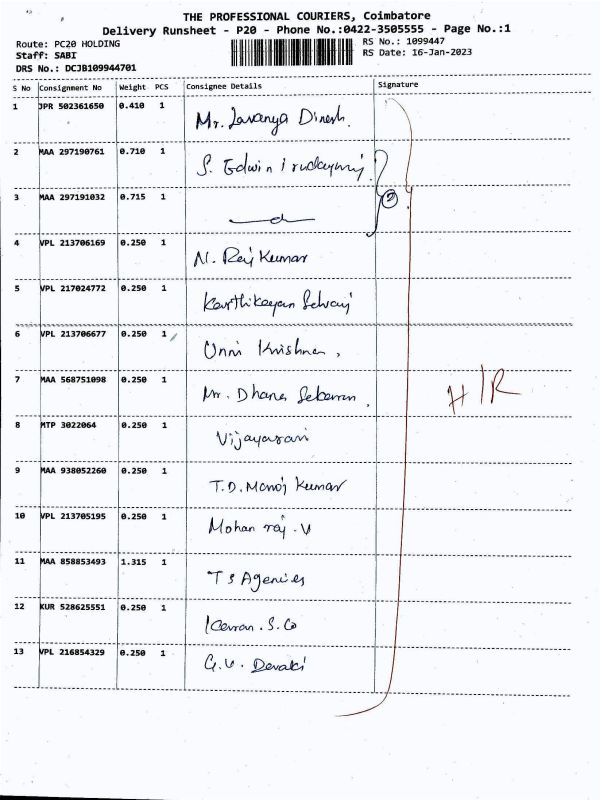 THE PROFESSIONAL COURIERS, Coimbatore
Delivery Runsheet - P20 - Phone No.:0422-3505555 - Page No.:1
Route: PC20 HOLDING RS No.: 1099447
Staff: SABI RS Date: 16-Jan-2023
DRS No.: DCJB109944701
S No Consignment No Weight PCS Consignee Details Signature
1 JPR 502361650 0.410 1 Mr. Lavanya Dinesh.
2 MAA 297190761 0.710 1 S. Edwin Irudayaraj
3 MAA 297191032 0.715 1 —d— 2
4 VPL 213706169 0.250 1 N. Raj Kumar
5 VPL 217024772 0.250 1 Karthikeyan Selvaj
6 VPL 213706677 0.250 1 Unni Krishnan,
7 MAA 568751098 0.250 1 Mr. Dhana Sekaran. H/R
8 MTP 3022064 0.250 1
9 MAA 938052260 0.250 1 T.D. Manoj Kumar
10 VPL 213705195 0.250 1 Mohan raj. V
11 MAA 858853493 1.315 1 T S Agencies
12 KUR 528625551 0.250 1 S. Co
13 VPL 216854329 0.250 1 G.V. Devaki